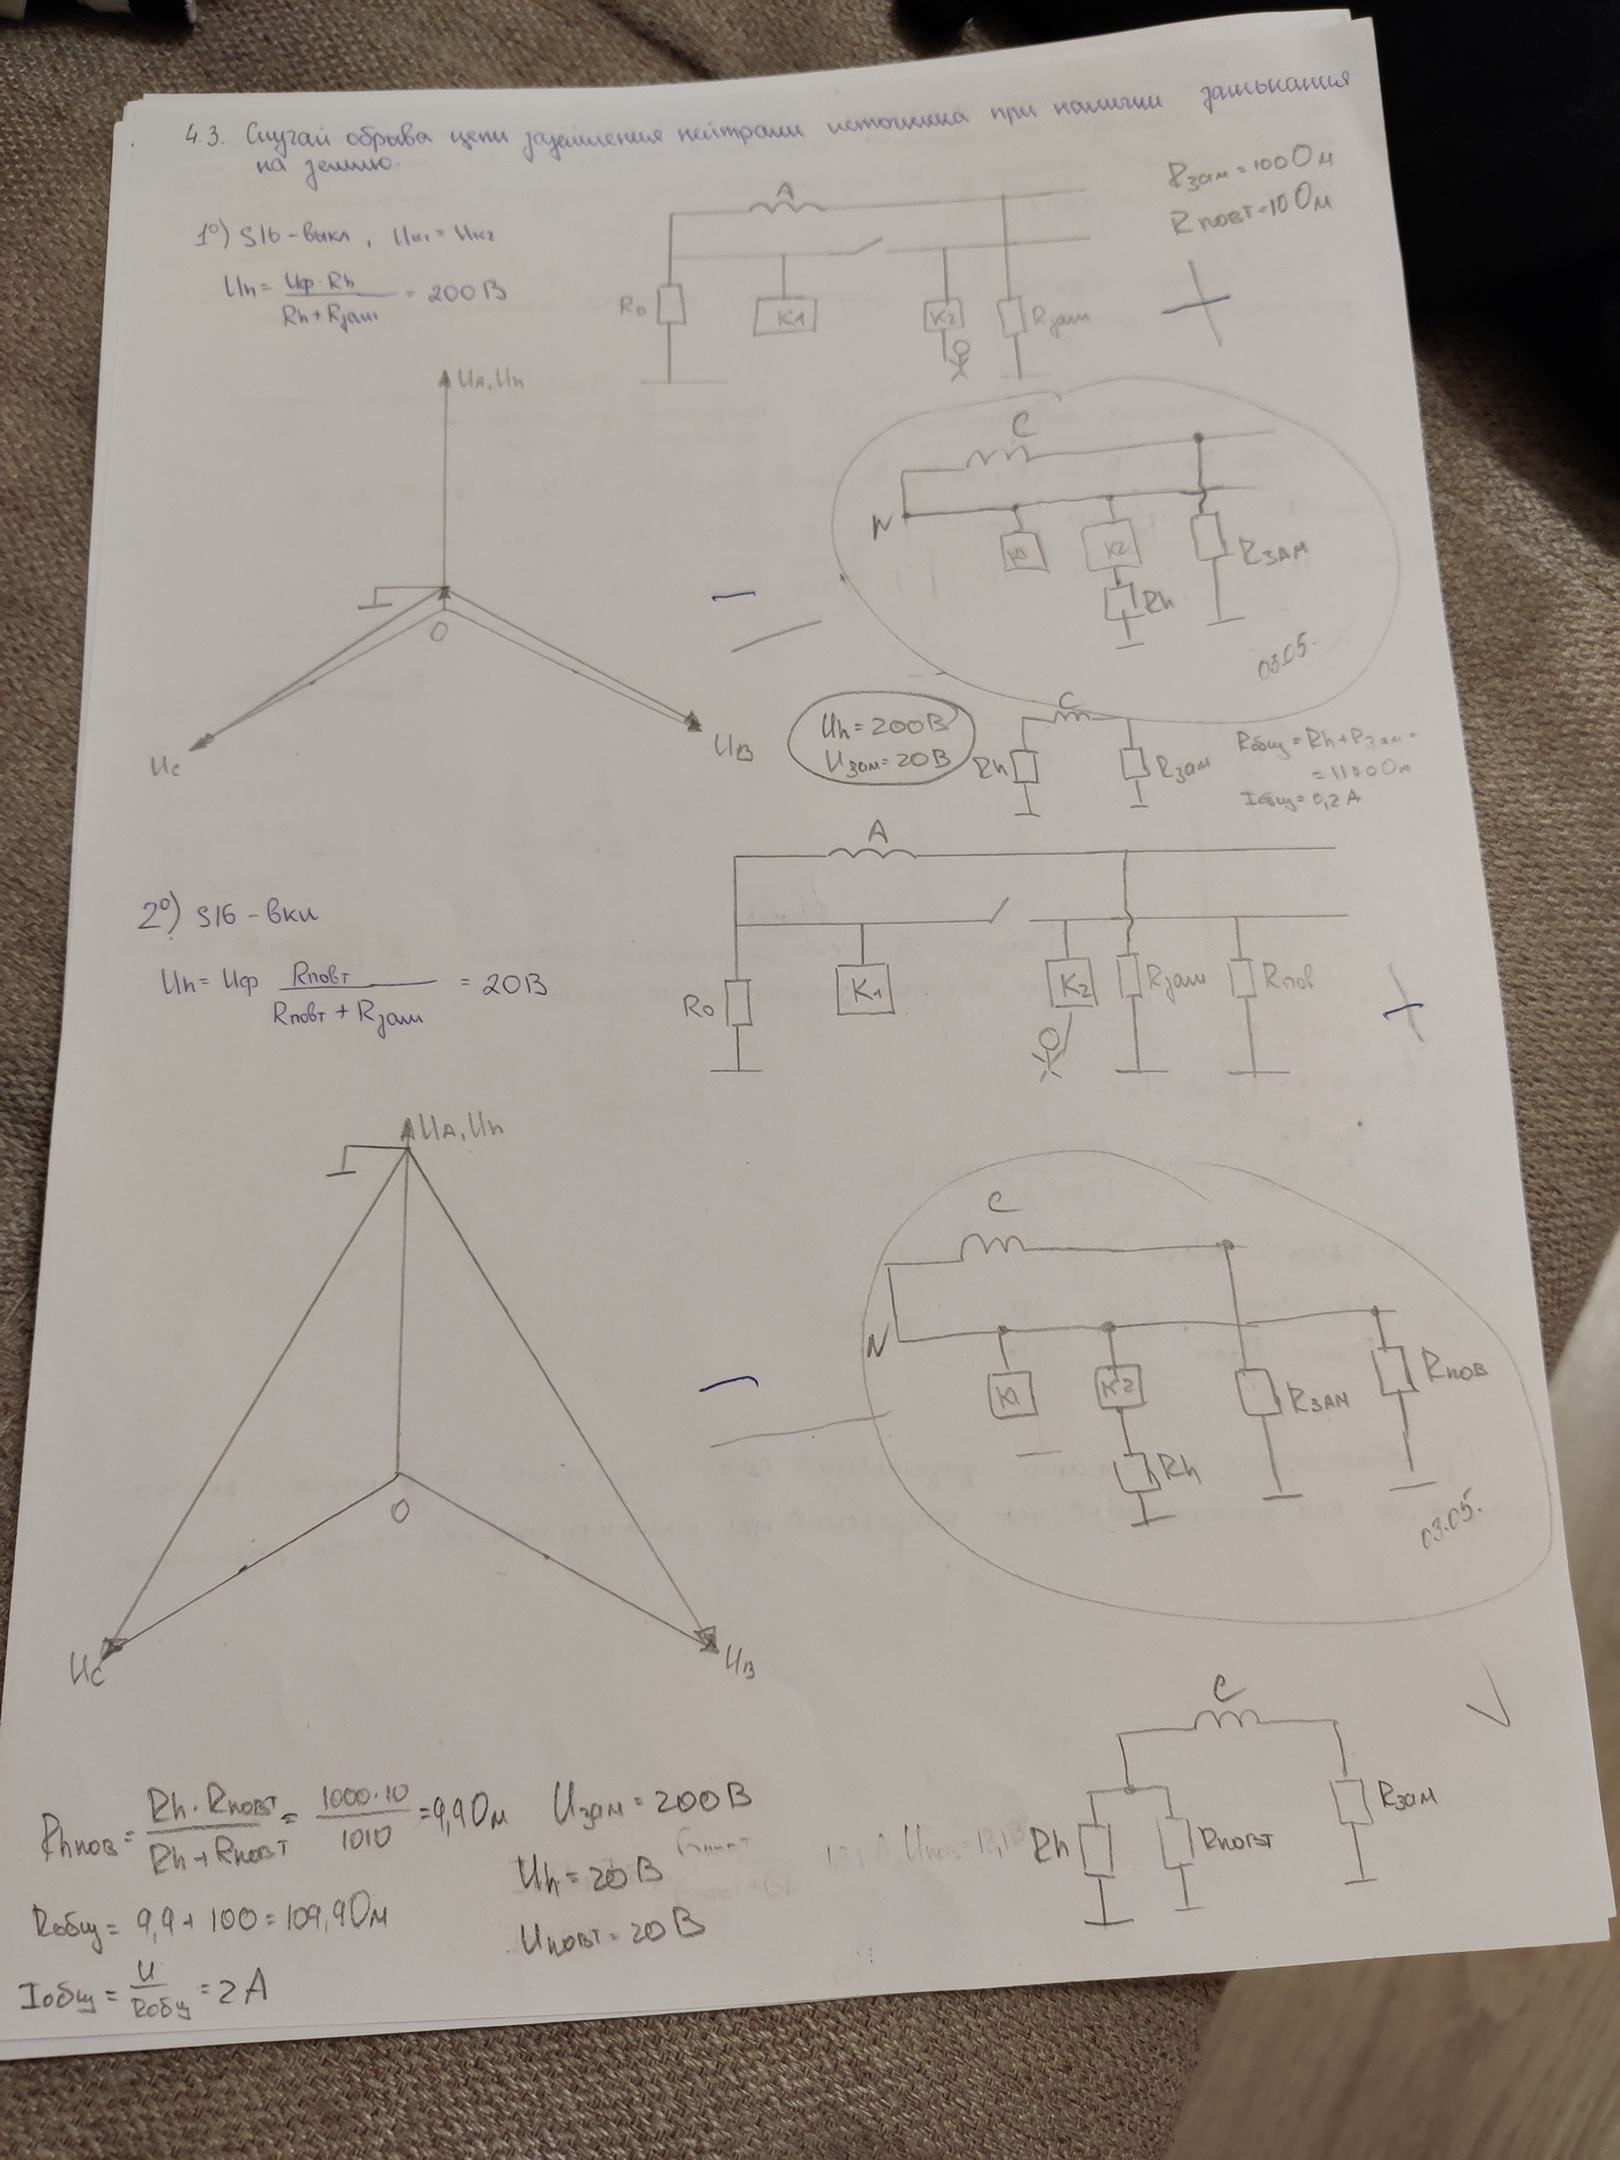 4.3. Случай обрыва цепи заземления нейтрали источника при наличии замыкания
на землю.
Rзам = 100 Ом
Rповт = 10 Ом
1°) S16 - выкл, Uк1 = Uк2
Uh = Uф · Rh / Rh + Rзам = 200 В
A
R0
K1
K2
Rзам
UA, Uh
O
UC
UB
C
N
K1
K2
Rh
RЗАМ
03.05.
Uh = 200В
Uзам = 20В
C
Rh
Rзам
Rобщ = Rh + Rзам =
= 1100 Ом
Iобщ = 0,2 А
2°) S16 - вкл
Uh = Uф Rповт / Rповт + Rзам = 20 В
A
R0
K1
K2
Rзам
Rпов
UA, Uh
O
UC
UB
C
N
K1
K2
Rh
RЗАМ
Rпов
03.05.
Rhпов = Rh · Rповт / Rh + Rповт = 1000·10 / 1010 = 9,9 Ом
Rобщ = 9,9 + 100 = 109,9 Ом
Iобщ = U / Rобщ = 2 А
Uзам = 200 В
Uh = 20 В
Uповт = 20 В
C
Rh
Rповт
Rзам